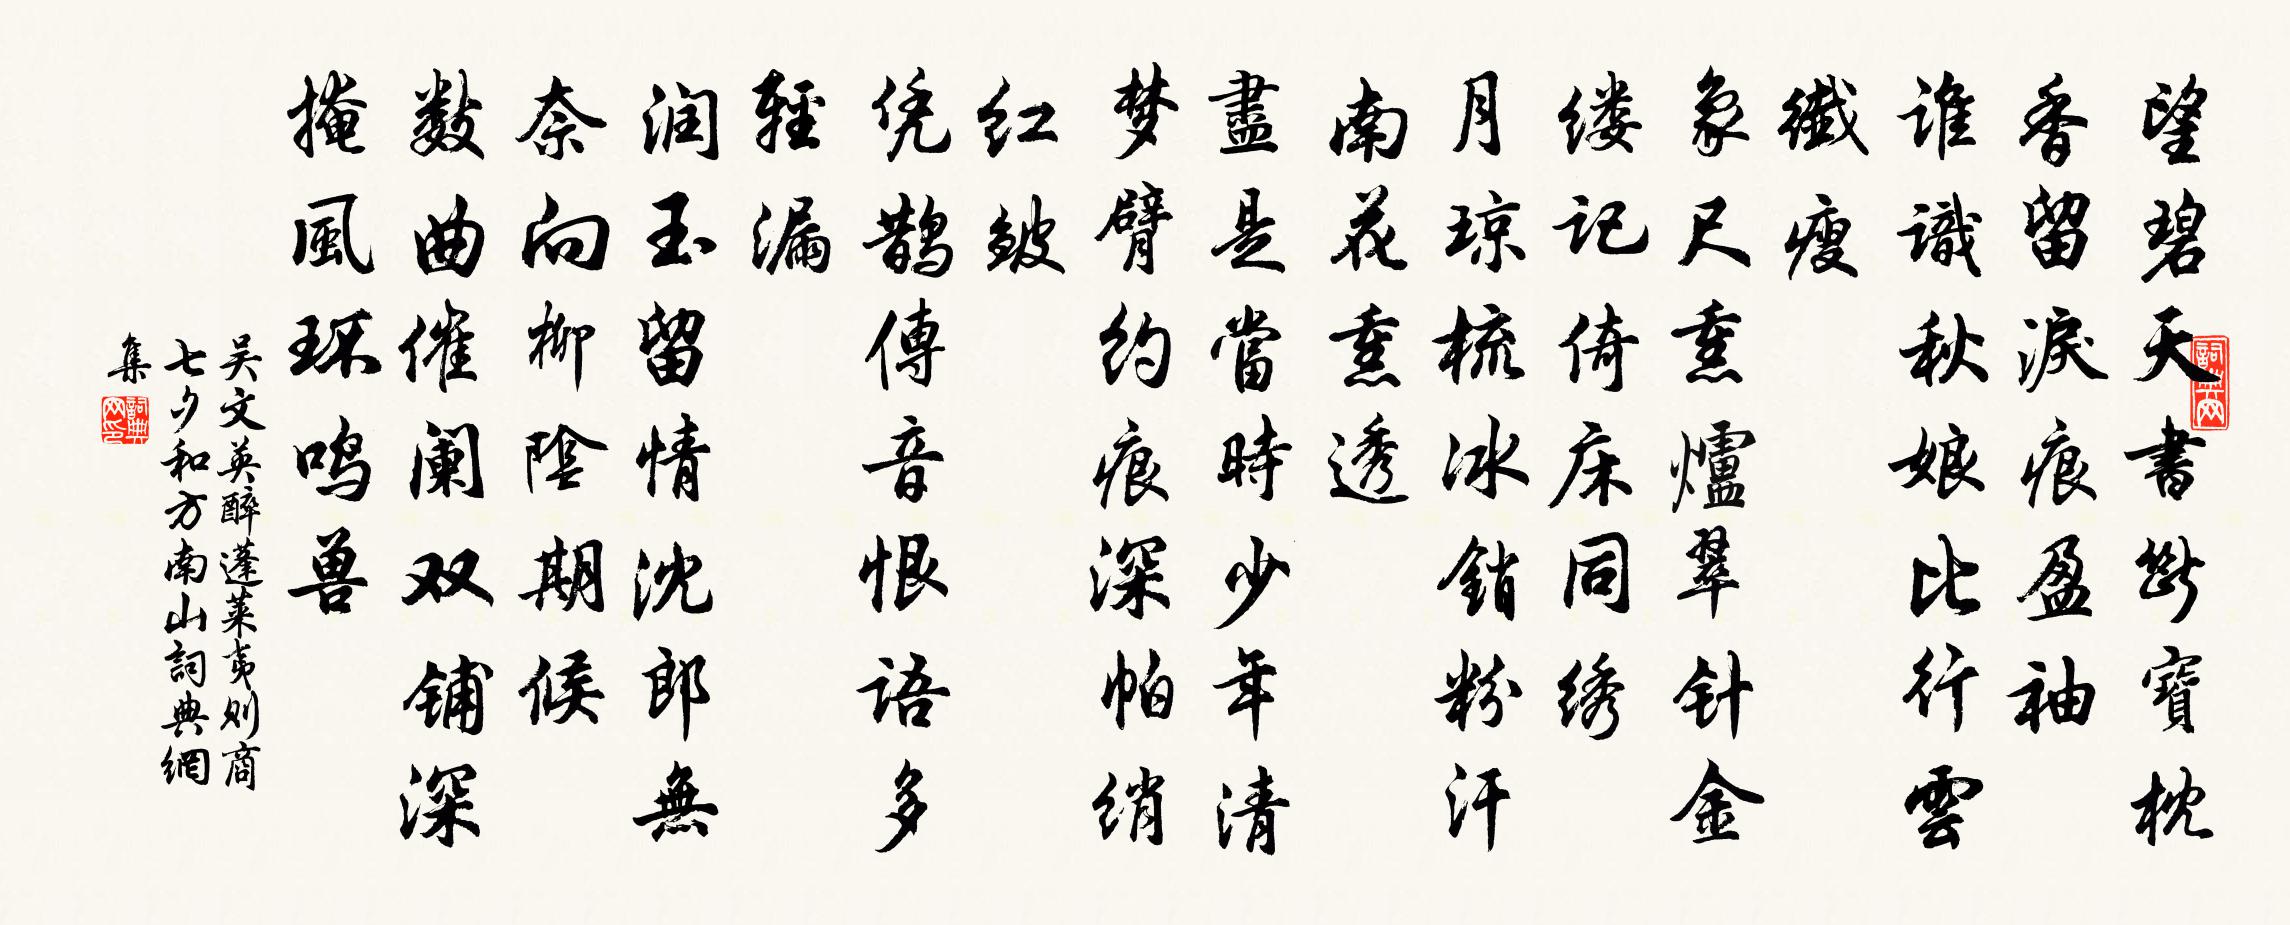 望碧天書斷寶枕
香留淚痕盈袖
谁識秋娘比行雲
纖瘦
象尺熏爐翠针金
缕记倚床同绣
月琼梳冰銷粉汗
南花熏透
盡是當時少年清
梦臂约痕深帕绡
红皱
凭鹊傳音恨语多
輕漏
润玉留情沈郎無
奈向柳陰期候
数曲催阑双铺深
掩風环鸣兽
吴文英醉蓬莱夷则商
七夕和方南山詞典網
集
詞典网
詞典网印